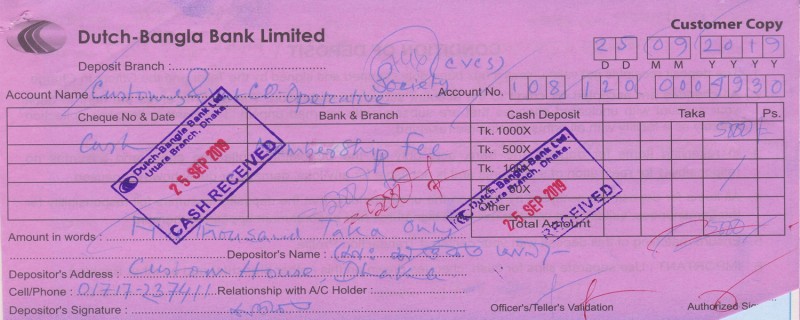 Customer Copy
Dutch-Bangla Bank Limited
25 09 2019
D D M M Y Y Y Y
Deposit Branch :
Society
Account Name : Customs Co Operative
Account No. 108 120 0004930
Cheque No & Date Bank & Branch Cash Deposit Taka Ps.
Cash Membership Fee
Tk. 1000X 5000
Tk. 500X
Tk. 100X
Tk.
Other
Total Amount 5000
Dutch-Bangla Bank Ltd.
Uttara Branch, Dhaka.
25 SEP 2019
CASH RECEIVED
Dutch-Bangla Bank Ltd.
Uttara Branch, Dhaka.
25 SEP 2019
RECEIVED
Amount in words : Thousand Taka Only
Depositor's Name :
Depositor's Address : Custom House Dhaka
Cell/Phone : 01717-237411 Relationship with A/C Holder :
Depositor's Signature :
Officer's/Teller's Validation
Authorized